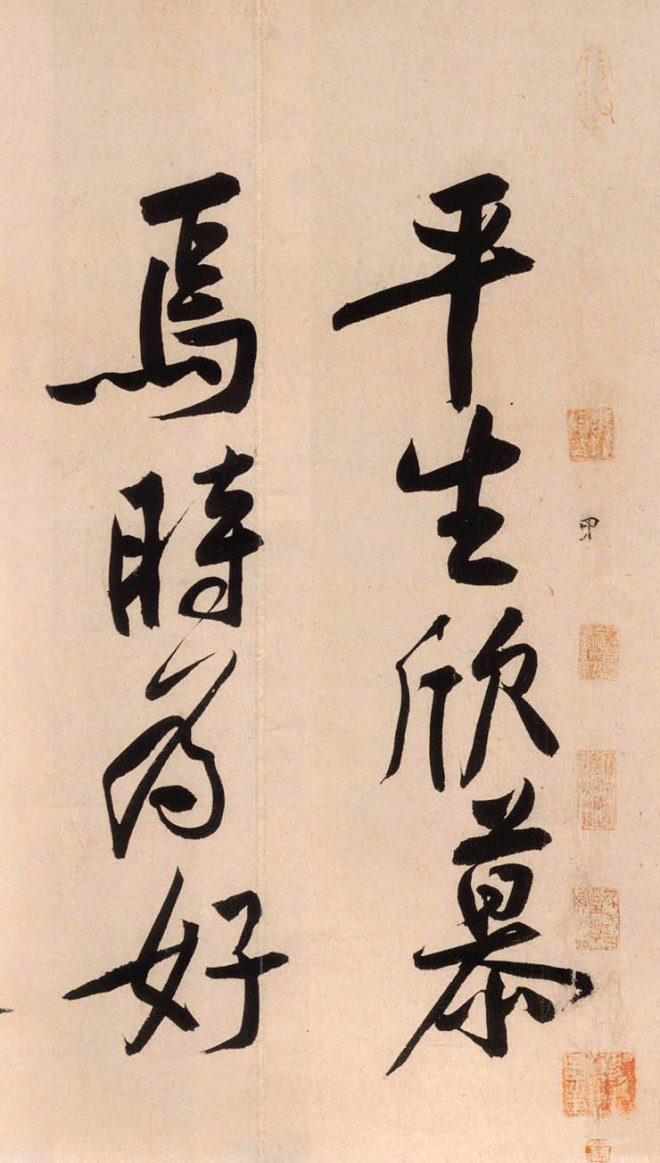 甲
平生欣慕
焉時為好